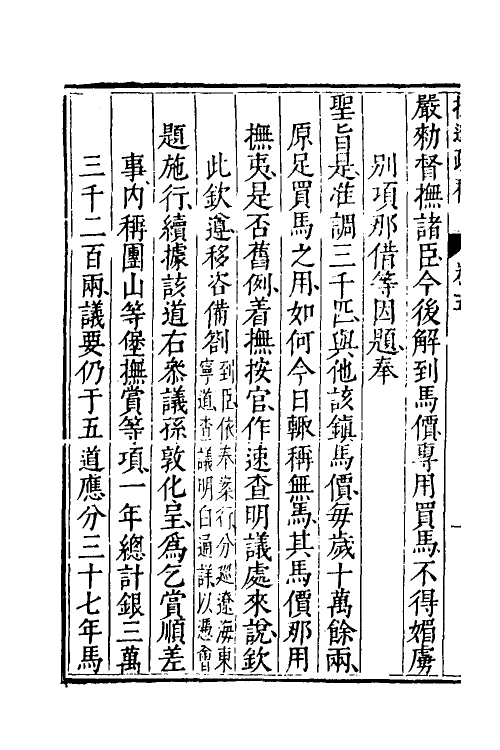 嚴勑督撫諸臣今後解到馬價專用買馬不得媚虜
別項那借等因題奉
聖旨是准調三千匹與他該鎮馬價每歲十萬餘兩
原足買馬之用如何今日輒稱無馬其馬價那用
撫夷是否舊例着撫按官作速查明議處來說欽
此欽遵移咨備劄到臣依奉案行分巡遼海東
寧道查議明白通詳以憑會
題施行續據該道右參議孫敦化呈為乞賞順差
事內稱團山等堡撫賞等項一年總計銀三萬
三千二百兩議要仍于五道應分三十七年馬